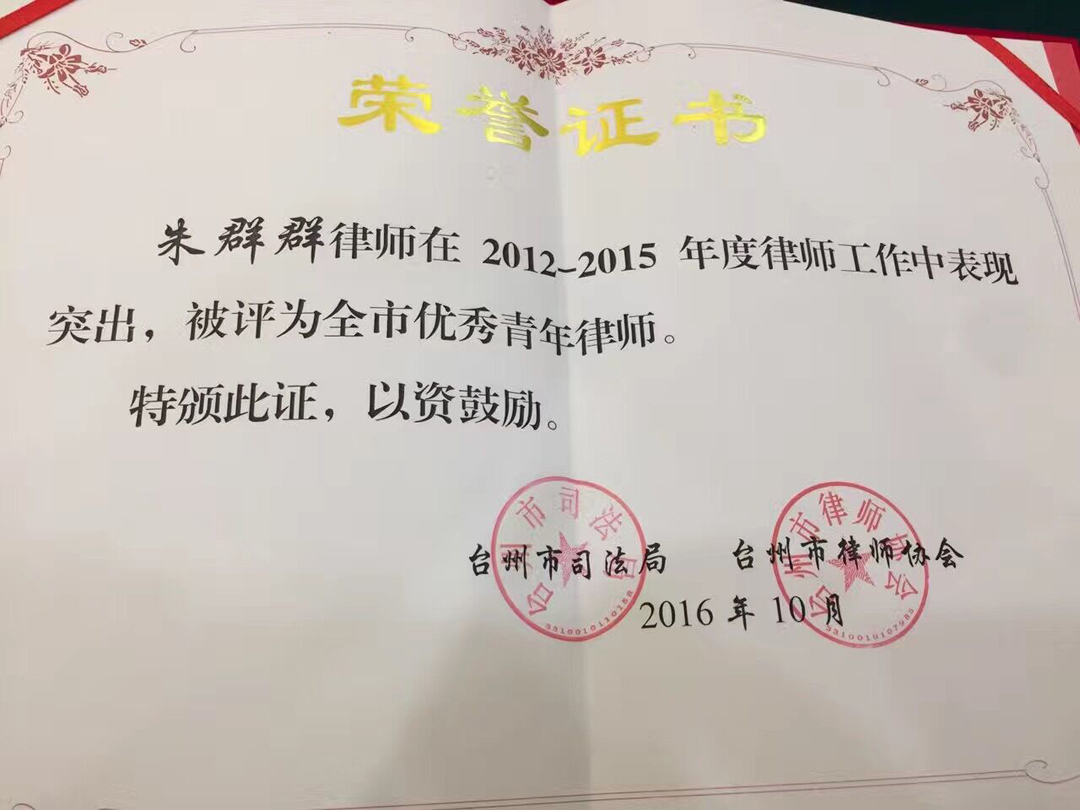 荣誉证书
朱群群律师在 2012-2015 年度律师工作中表现
突出，被评为全市优秀青年律师。
特颁此证，以资鼓励。
台州市司法局 台州市律师协会
2016 年 10 月
台州市司法局
3310010110158
台州市律师协会
3310010107985